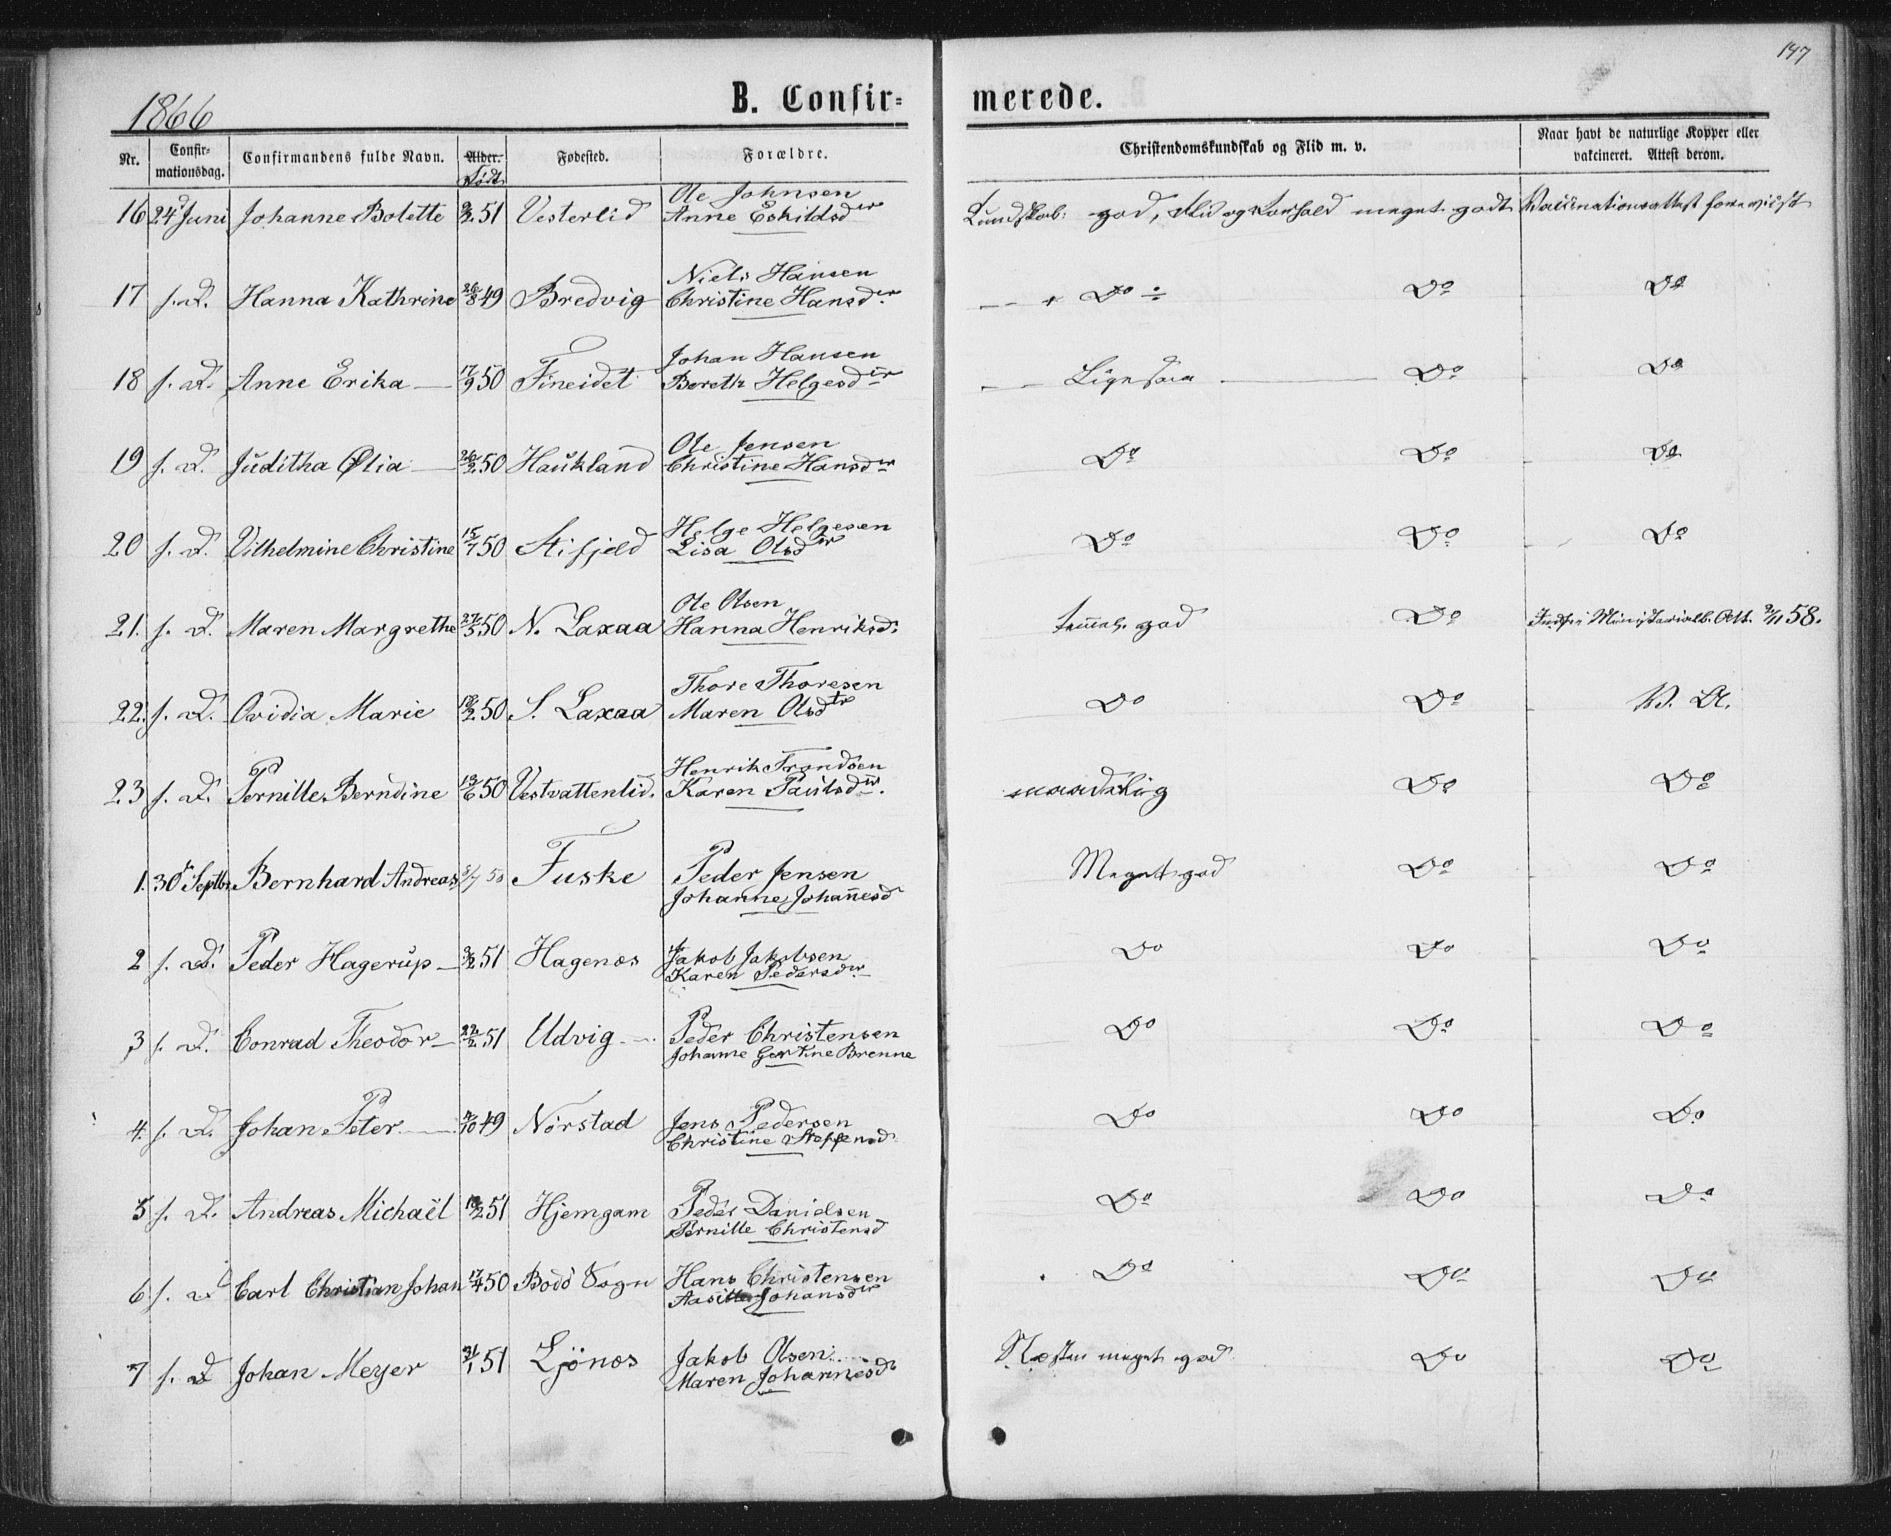 147
1866
B. Confirmerede.
Nr. Confirmationsdag. Confirmandens fulde Navn. Alder. Født Fødested. Forældre. Christendomskundskab og Flid m. v. Naar havt de naturlige Kopper eller vakcineret. Attest derom.
16 24d Juni Johanne Bolette 9/2 51 Vesterlid Ole Johnsen Kundskab: god, Flid og Forhold meget godt Vaccinationsattest forevist
Anne Eskildsdtr
17 s. D. Hanna Kathrine 26/8 49 Bredvig Niels Hansen Do ÷ Do Do
Christine Hansdtr
18 s. D. Anne Erika 17/9 50 Fineidet Johan Hansen Ligesaa Do Do
Bereth Helgesdtr
19 s. D. Juditha Olia 26/2 50 Haukland Ole Jensen Do Do Do
Christine Hansdtr
20 s. D. Vilhelmine Christine 15/7 50 Stifjeld Helge Helgesen Do Do Do
Lisa Olsdtr
21. s. D. Maren Margrethe 27/5 50 N. Laxaa Ole Olsen god Do Att. 2/11 58.
Hanna Henriksd.
22. s. D. Ovidia Marie 50 S. Laxaa Thore Thoresen Do Do V. A.
Maren Olsdtr
23 s. D. Pernille Berndine 13/6 50 Vestvattenlid. Henrik Trondsen maadelig Do Do
Karen Paulsdtr.
1. 30d Septbr. Bernhard Andreas 50 Fuske Peder Jensen Meget god Do Do
Johanne Johannesd
2 s. D. Peder Hagerup 51 Hagenæs Jakob Jakobsen Do Do Do
Karen Pedersdtr
3 s. D. Conrad Theodor 22/2 51 Udvig Peder Christensen Do Do Do
Johanne Gertine Brenne
4. s. D. Johan Peter 49 Nörstad Jens Pedersen Do Do Do
Christine Steffensd.
5 s. D. Andreas Michaël 51 Hjemgam Peder Danielsen Do Do Do
Pernille Christensd
6 s. D Carl Christian Johan 17/4 50 Bodö Sogn Hans Christensen Do Do Do
Johansdtr
7 s. D Johan Meyer 31/1 51 Ljönes Jakob Olsen Næsten meget god Do Do
Maren Johannesd